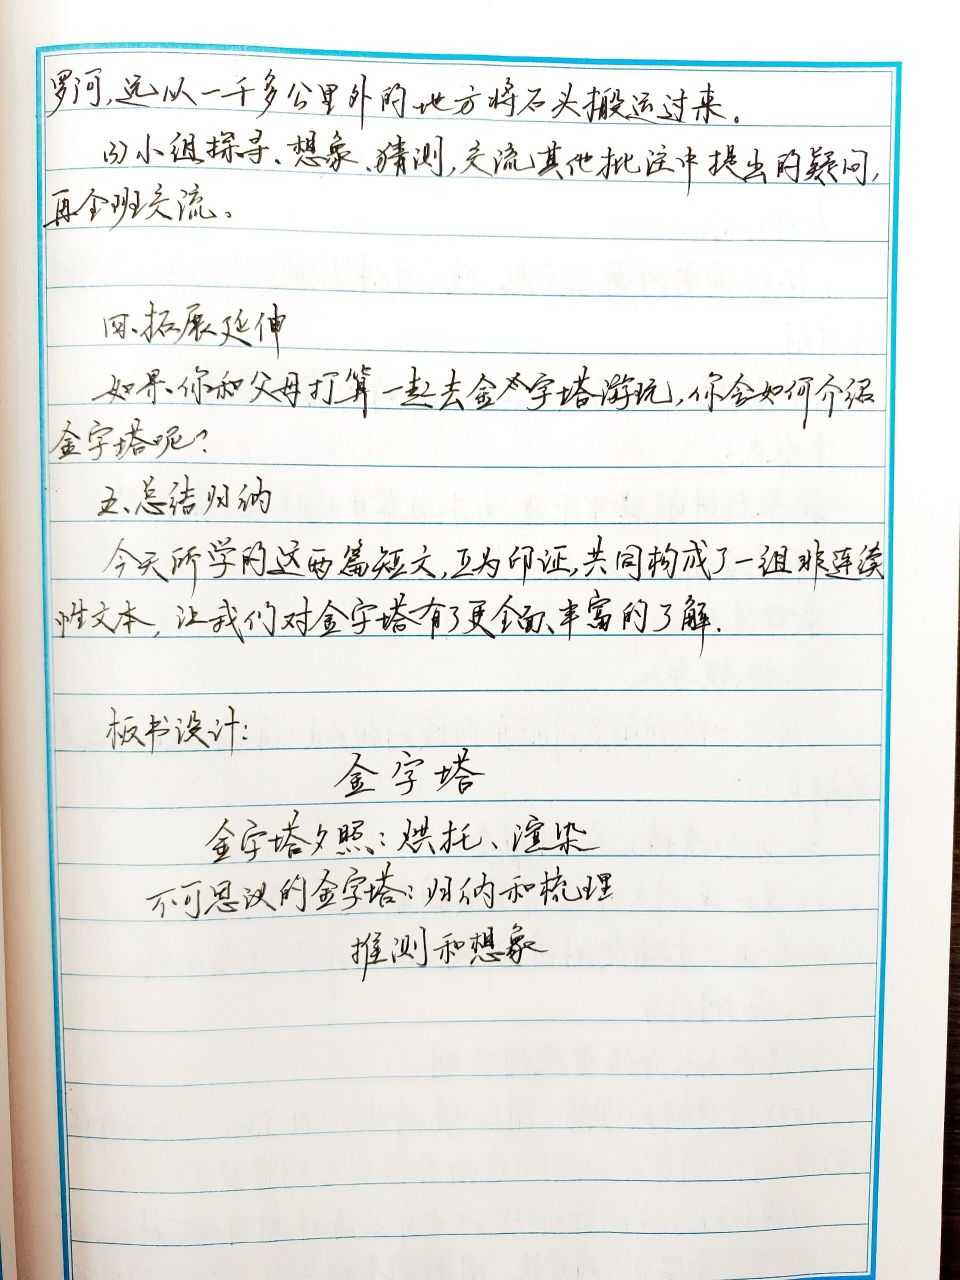 罗河,远从一千多公里外的地方将石头搬运过来。
(3)小组探寻、想象、猜测,交流其他批注中提出的疑问,
再全班交流。
四、拓展延伸
如果、你和父母打算一起去金字塔游玩,你会如何介绍
金字塔呢?
五、总结归纳
今天所学的这两篇短文,互为印证,共同构成了一组非连续
性文本,让我们对金字塔有了更全面、丰富的了解.
板书设计:
金字塔
金字塔夕照:烘托、渲染
不可思议的金字塔:归纳和梳理
推测和想象